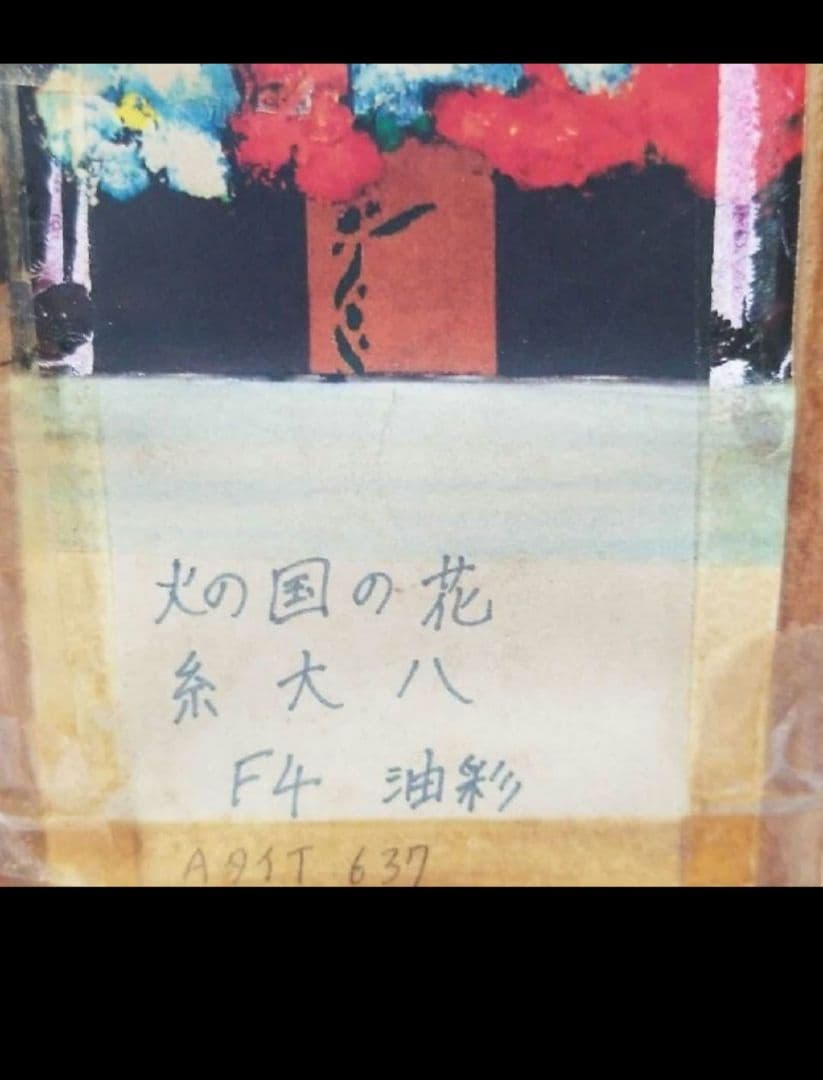 火の国の花
糸大八
F4 油彩
AタイT 637